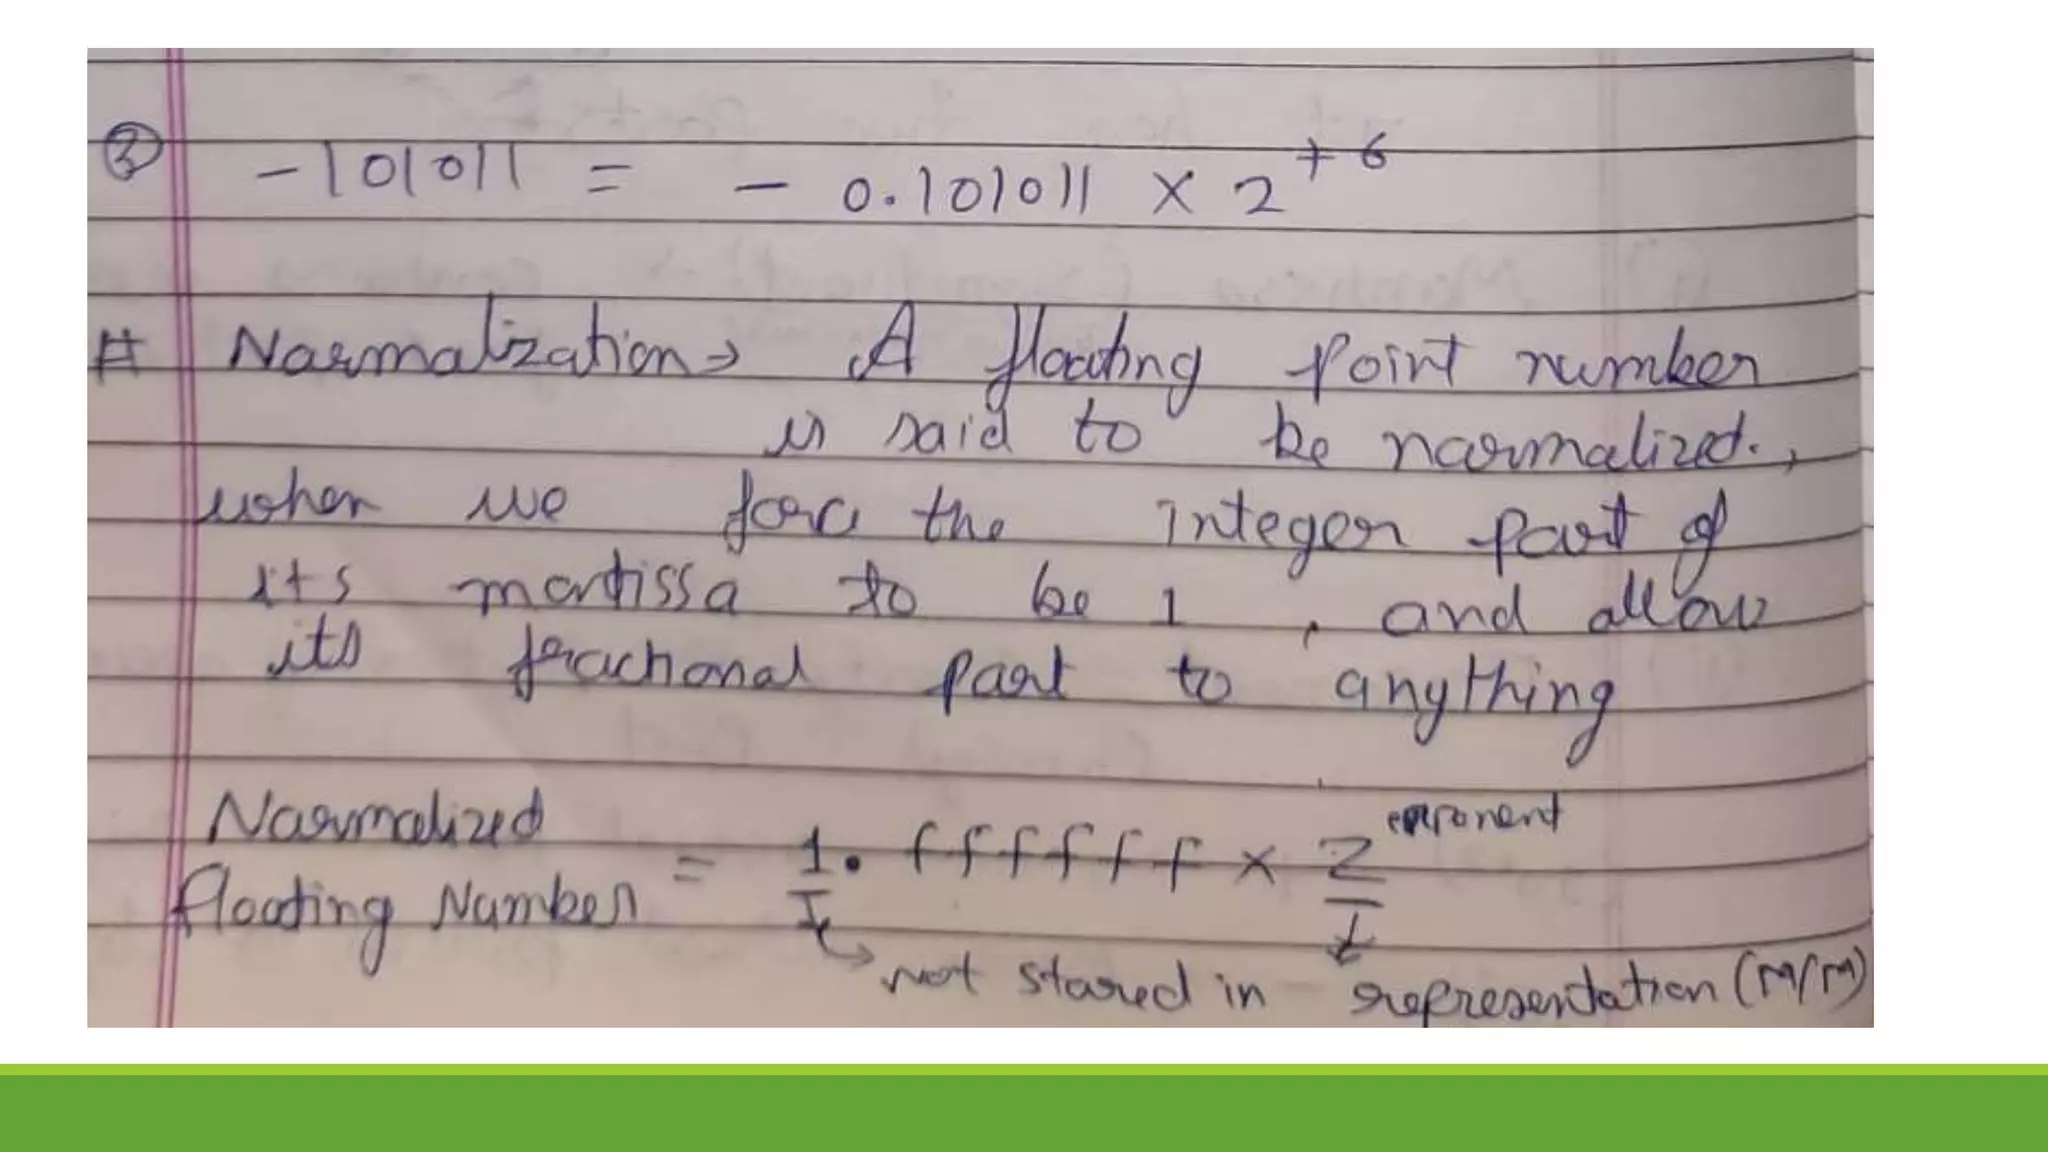 ③ -101011 = - 0.101011 × 2^+6
# Normalization → A floating point number
is said to be normalized.,
when we force the integer part of
its mantissa to be 1, and allow
its fractional part to anything
Normalized
floating Number = 1. ffffff × 2^exponent
not stored in representation (M/M)